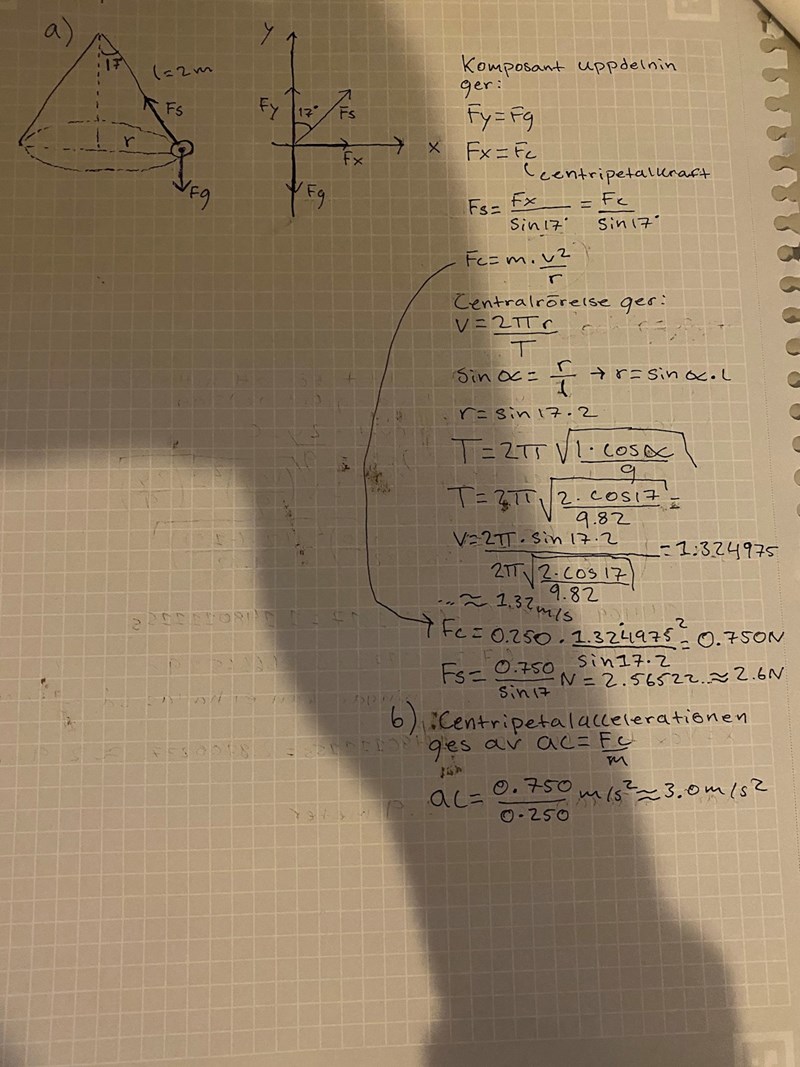 a)
17°
l=2m
Fs
r
Fg
y
Fy
17°
Fs
x
Fx
Fg
Komposant uppdelnin
ger:
Fy=Fg
Fx=Fc
centripetalkraft
Fs= Fx/Sin17° = Fc/Sin17°
Fc= m·v²/r
Centralrörelse ger:
V=2πr/T
Sin α= r/l → r=Sin α·L
r= sin 17·2
T=2π√(l·cosα/g)
T=2π√(2·cos17/9.82) =
V=2π·sin 17·2/2π√(2·cos17/9.82) =1.324975
...≈ 1.32 m/s
Fc=0.250·1.324975²/sin17·2 = 0.750N
Fs= 0.750/sin17 N = 2.56522..≈2.6N
b) Centripetalaccelerationen
ges av ac= Fc/m
ac= 0.750/0.250 m/s²≈3.0m/s²